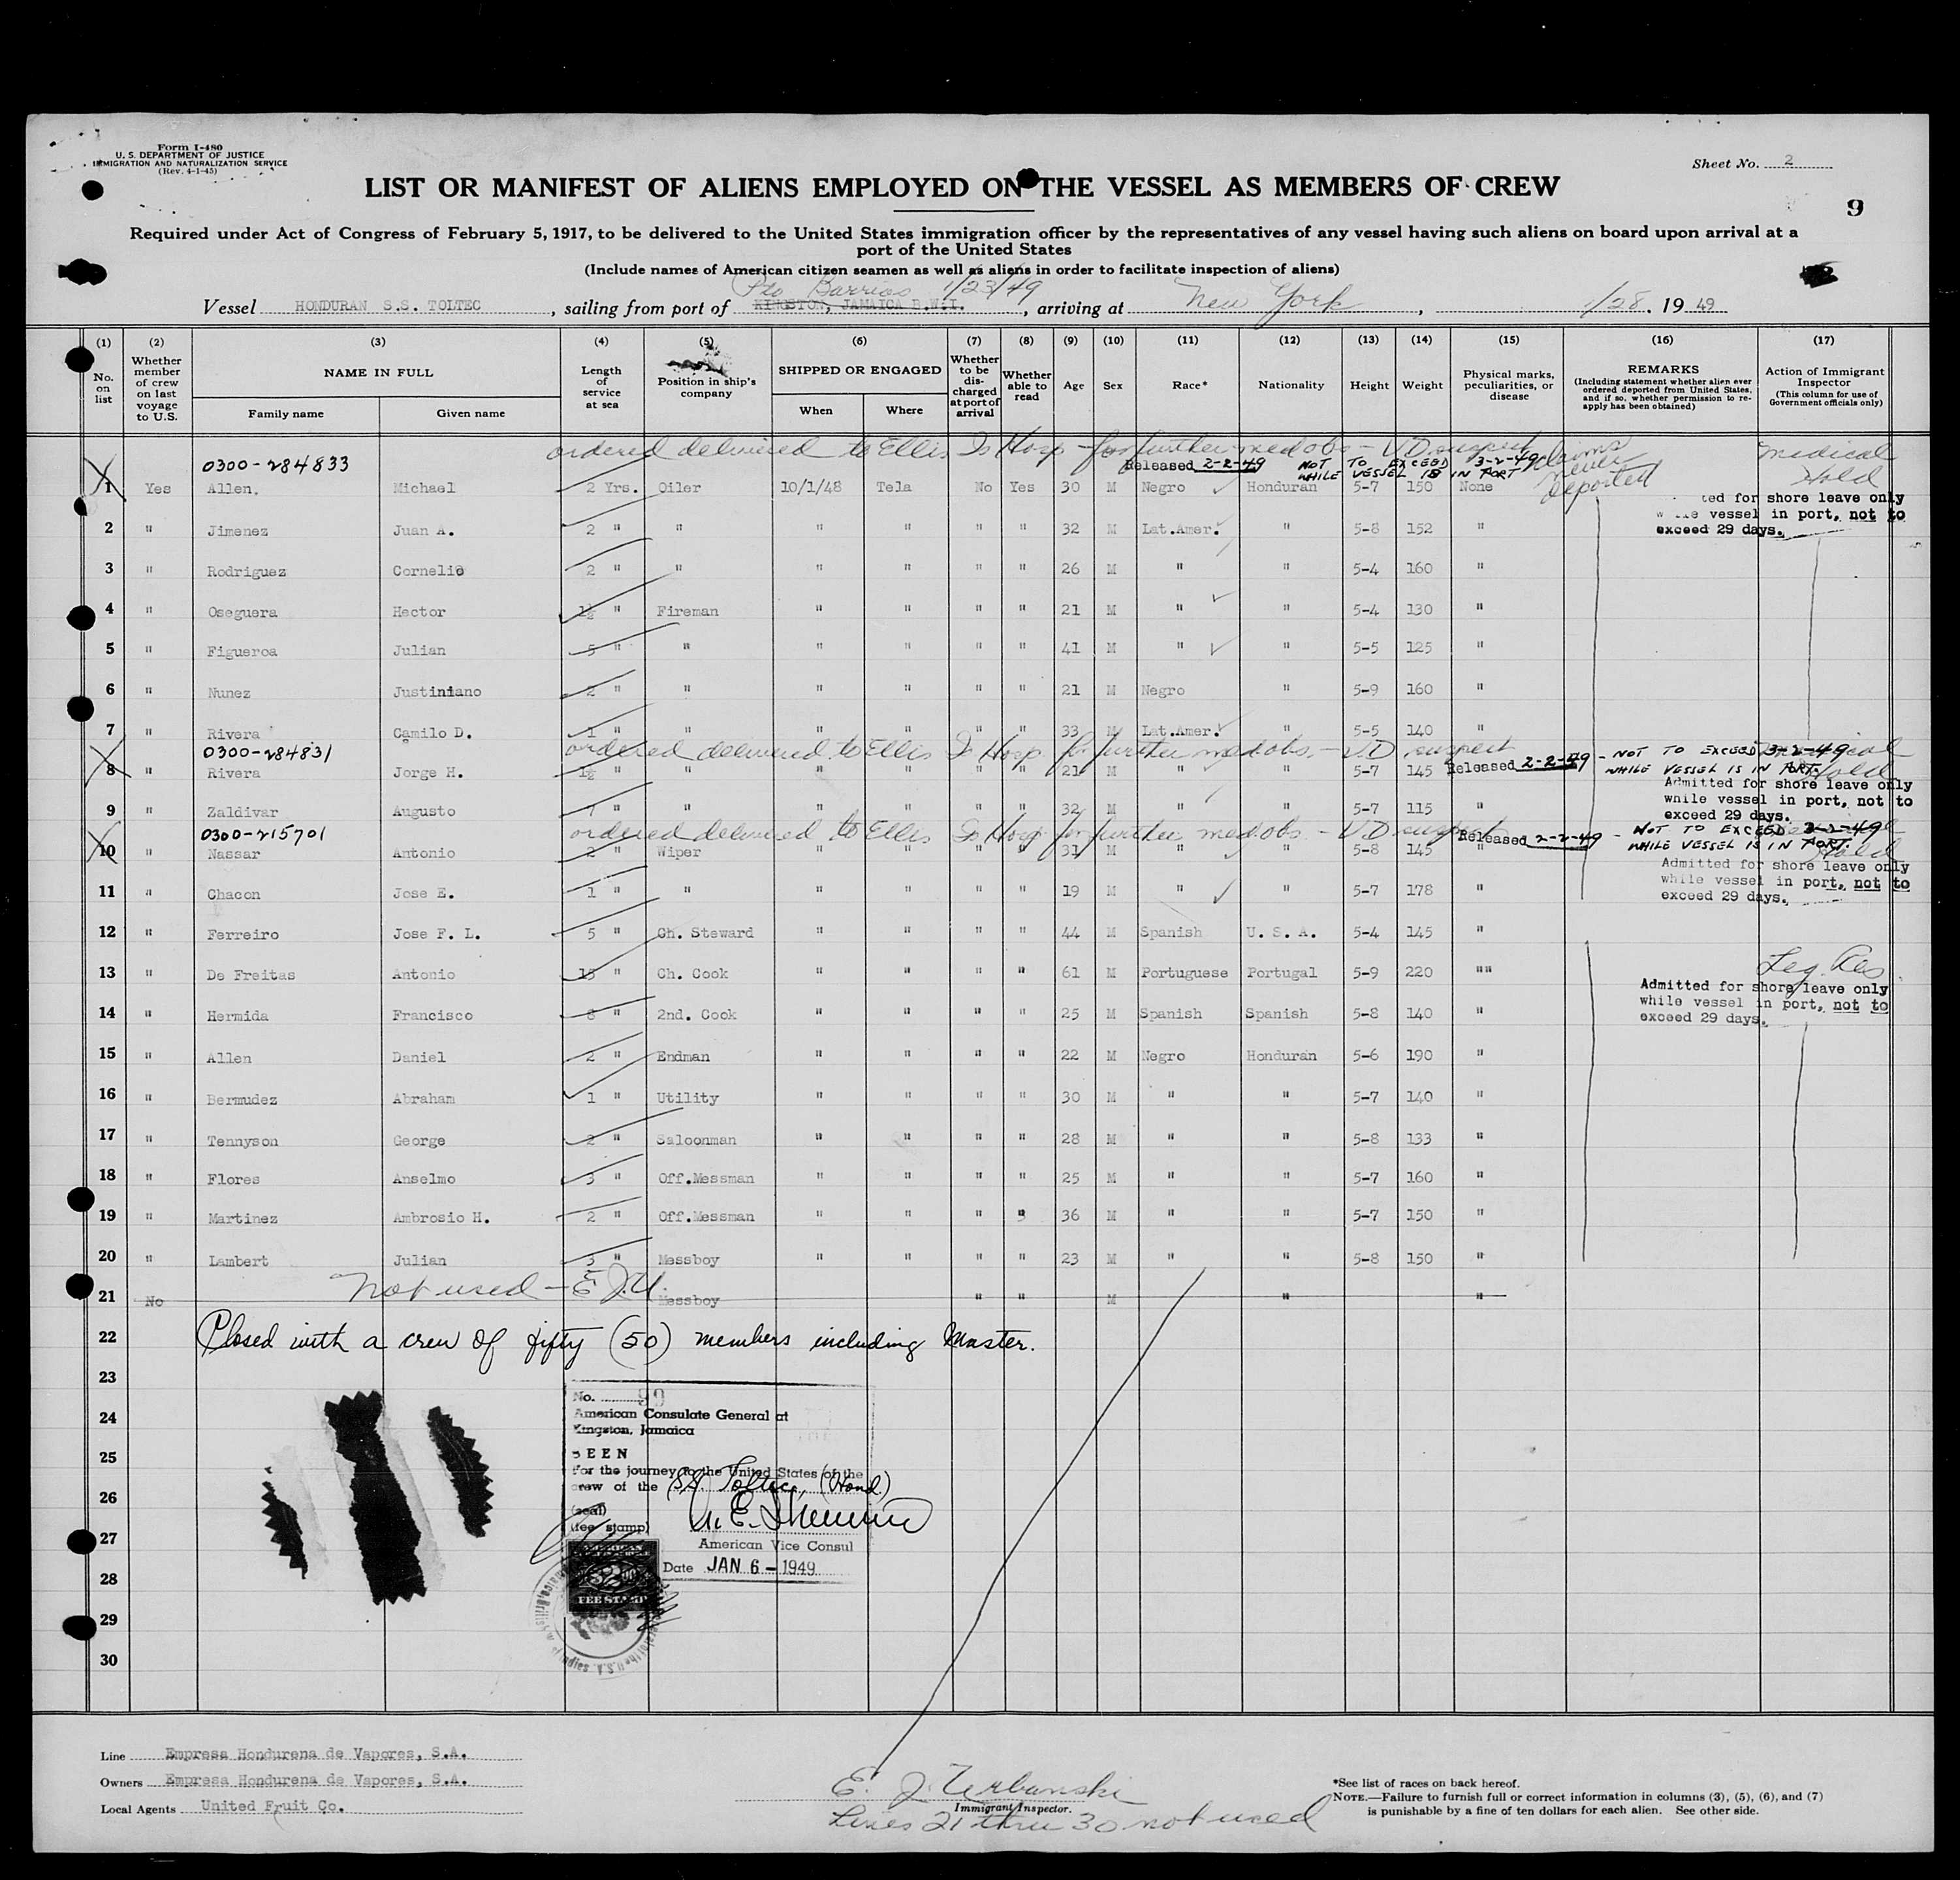 Form I-480
U. S. DEPARTMENT OF JUSTICE
IMMIGRATION AND NATURALIZATION SERVICE
(Rev. 4-1-45)
Sheet No. 2
LIST OR MANIFEST OF ALIENS EMPLOYED ON THE VESSEL AS MEMBERS OF CREW
9
Required under Act of Congress of February 5, 1917, to be delivered to the United States immigration officer by the representatives of any vessel having such aliens on board upon arrival at a
port of the United States
(Include names of American citizen seamen as well as aliens in order to facilitate inspection of aliens)
Pto Barrios 1/23/49
Vessel HONDURAN S.S. TOLTEC, sailing from port of KINGSTON, JAMAICA B.W.I., arriving at New York, 1/28, 19 49
(1) (2) (3) (4) (5) (6) (7) (8) (9) (10) (11) (12) (13) (14) (15) (16) (17)
No. on list
Whether member of crew on last voyage to U.S.
NAME IN FULL
Family name
Given name
Length of service at sea
Position in ship's company
SHIPPED OR ENGAGED
When
Where
Whether to be discharged at port of arrival
Whether able to read
Age
Sex
Race*
Nationality
Height
Weight
Physical marks, peculiarities, or disease
REMARKS
(Including statement whether alien ever ordered deported from United States, and if so, whether permission to reapply has been obtained)
Action of Immigrant Inspector
(This column for use of Government officials only)
ordered delivered to Ellis Is Hosp - for further med obs - VD suspect claims never deported Medical Hold
0300-284833 Released 2-2-49 NOT TO EXCEED 3-2-49
WHILE VESSEL IS IN PORT
1 Yes Allen, Michael 2 Yrs. Oiler 10/1/48 Tela No Yes 30 M Negro Honduran 5-7 150 None
ted for shore leave only
vessel in port, not to
exceed 29 days.
2 " Jimenez Juan A. 2 " " " " " " 32 M Lat.Amer. " 5-8 152 "
3 " Rodriguez Cornelio 2 " " " " " " 26 M " " 5-4 160 "
4 " Oseguera Hector 1½ " Fireman " " " " 21 M " " 5-4 130 "
5 " Figueroa Julian 5 " " " " " " 41 M " " 5-5 125 "
6 " Nunez Justiniano 2 " " " " " " 21 M Negro " 5-9 160 "
7 " Rivera Camilo D. 1 " " " " " " 33 M Lat.Amer. " 5-5 140 "
0300-284831 ordered delivered to Ellis Is Hosp for further med obs. - VD suspect - NOT TO EXCEED 3-2-49
8 " Rivera Jorge H. 1½ " " " " " " 21 M " " 5-7 145 Released 2-2-49 WHILE VESSEL IS IN PORT. Hold
Admitted for shore leave only
while vessel in port, not to
exceed 29 days.
9 " Zaldivar Augusto 7 " " " " " " 32 M " " 5-7 115 "
0300-215701 ordered delivered to Ellis Is Hosp for further med obs. - VD suspect Released 2-2-49 - NOT TO EXCEED 3-2-49
WHILE VESSEL IS IN PORT. Hold
10 " Nassar Antonio 2 " Wiper " " " " 31 M " " 5-8 145 "
Admitted for shore leave only
while vessel in port, not to
exceed 29 days.
11 " Chacon Jose E. 1 " " " " " " 19 M " " 5-7 178 "
12 " Ferreiro Jose F. L. 5 " Ch. Steward " " " " 44 M Spanish U. S. A. 5-4 145 "
13 " De Freitas Antonio 15 " Ch. Cook " " " " 61 M Portuguese Portugal 5-9 220 "" Leg. Res.
Admitted for shore leave only
while vessel in port, not to
exceed 29 days.
14 " Hermida Francisco 8 " 2nd. Cook " " " " 25 M Spanish Spanish 5-8 140 "
15 " Allen Daniel 2 " Endman " " " " 22 M Negro Honduran 5-6 190 "
16 " Bermudez Abraham 1 " Utility " " " " 30 M " " 5-7 140 "
17 " Tennyson George 2 " Saloonman " " " " 28 M " " 5-8 133 "
18 " Flores Anselmo 3 " Off.Messman " " " " 25 M " " 5-7 160 "
19 " Martinez Ambrosio H. 2 " Off.Messman " " " " 36 M " " 5-7 150 "
20 " Lambert Julian 3 " Messboy " " " " 23 M " " 5-8 150 "
Not used - E.J.U.
21 No Messboy " " M " "
22 Closed with a crew of fifty (50) members including Master.
23
No. 90
24 American Consulate General at
Kingston, Jamaica
25 SEEN
for the journey to the United States of the
crew of the S.S. Toltec, (Hond)
26 (seal)
(fee stamp)
27 American Vice Consul
Date JAN 6 - 1949
28 FEE STAMP
29
30
Line Empresa Hondurena de Vapores, S.A.
Owners Empresa Hondurena de Vapores, S.A.
Local Agents United Fruit Co.
E. J. Urbanski
Immigrant Inspector.
Lines 21 thru 30 not used
*See list of races on back hereof.
NOTE.—Failure to furnish full or correct information in columns (3), (5), (6), and (7)
is punishable by a fine of ten dollars for each alien. See other side.